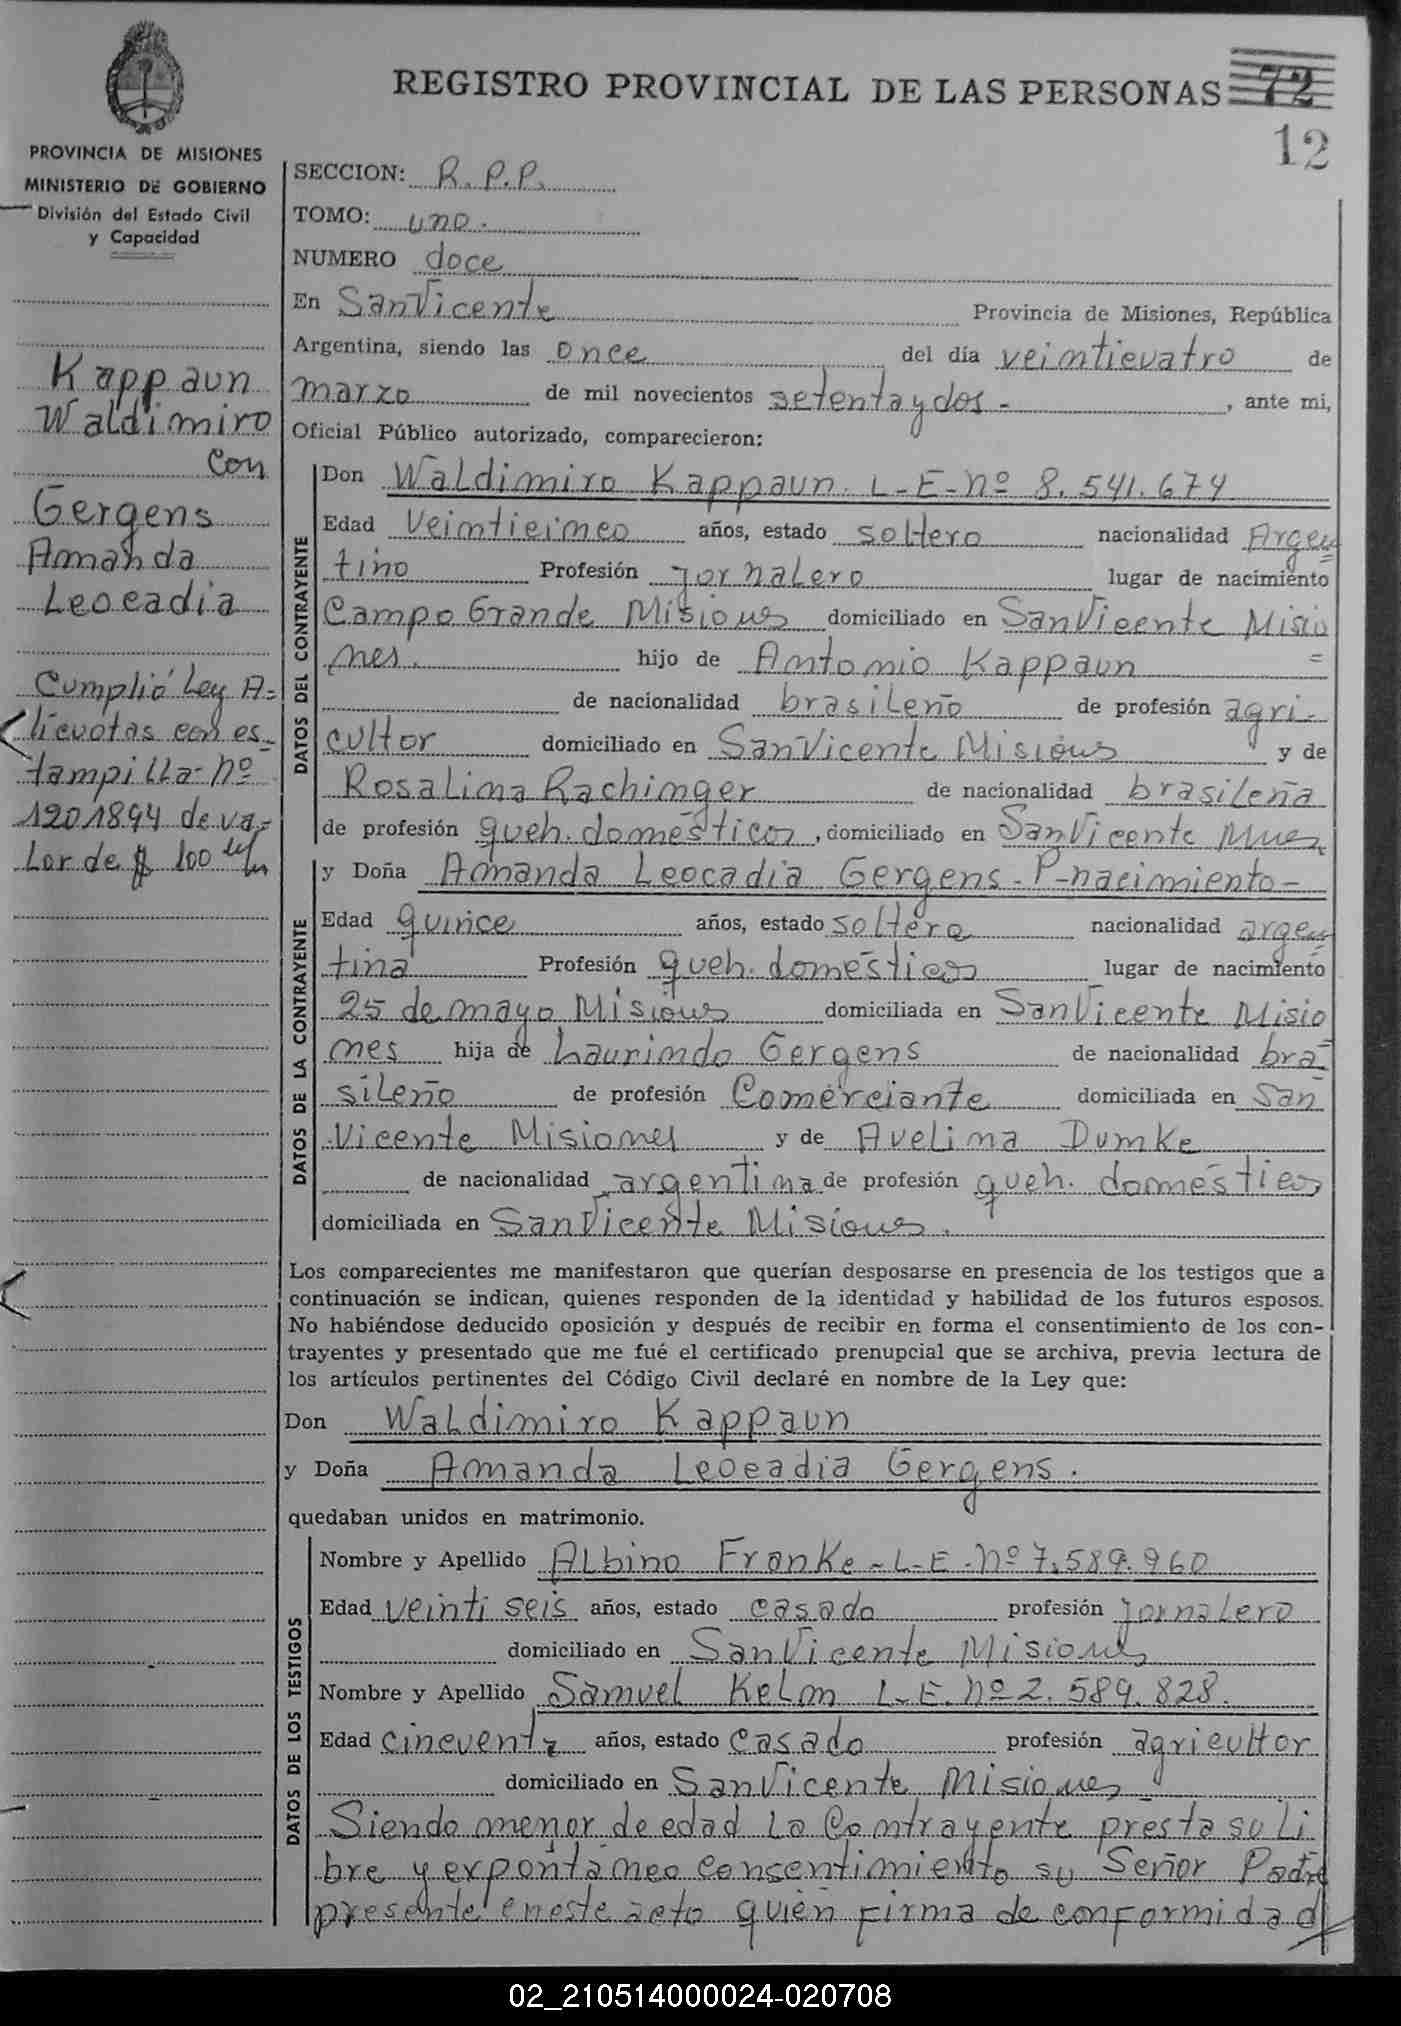 REGISTRO PROVINCIAL DE LAS PERSONAS 72
12
PROVINCIA DE MISIONES
MINISTERIO DE GOBIERNO
División del Estado Civil
y Capacidad
Kappaun
Waldimiro
con
Gergens
Amanda
Leocadia
Cumplió Ley A=
licuotas con es-
tampilla nº
1201894 de va-
lor de $ 100 m/n
SECCION: R.P.P.
TOMO: uno.
NUMERO doce
En San Vicente Provincia de Misiones, República
Argentina, siendo las once del día veinticuatro de
marzo de mil novecientos setenta y dos - , ante mi,
Oficial Público autorizado, comparecieron:
DATOS DEL CONTRAYENTE
Don Waldimiro Kappaun. L-E-nº 8.541.674
Edad veinticinco años, estado soltero nacionalidad Argen
tino Profesión jornalero lugar de nacimiento
Campo Grande Misiones domiciliado en San Vicente Misio
nes. hijo de Antonio Kappaun =
de nacionalidad brasileño de profesión agri-
cultor domiciliado en San Vicente Misiones y de
Rosalina Rachinger de nacionalidad brasileña
de profesión queh. domésticos, domiciliado en San Vicente Mnes
DATOS DE LA CONTRAYENTE
y Doña Amanda Leocadia Gergens - P-nacimiento -
Edad quince años, estado soltera nacionalidad argen
tina Profesión queh. domésticos lugar de nacimiento
25 de mayo Misiones domiciliada en San Vicente Misio
nes hija de Laurindo Gergens de nacionalidad bra-
sileño de profesión Comerciante domiciliada en San
Vicente Misiones y de Avelina Dumke
de nacionalidad argentina de profesión queh. domésticos
domiciliada en San Vicente Misiones.
Los comparecientes me manifestaron que querían desposarse en presencia de los testigos que a
continuación se indican, quienes responden de la identidad y habilidad de los futuros esposos.
No habiéndose deducido oposición y después de recibir en forma el consentimiento de los con-
trayentes y presentado que me fué el certificado prenupcial que se archiva, previa lectura de
los artículos pertinentes del Código Civil declaré en nombre de la Ley que:
Don Waldimiro Kappaun
y Doña Amanda Leocadia Gergens.
quedaban unidos en matrimonio.
DATOS DE LOS TESTIGOS
Nombre y Apellido Albino Franke - L-E-nº 7.589.960
Edad veinti seis años, estado casado profesión jornalero
domiciliado en San Vicente Misiones
Nombre y Apellido Samuel Kelm L-E.nº 2.589.828.
Edad cincuenta años, estado casado profesión agricultor
domiciliado en San Vicente Misiones
Siendo menor de edad la Contrayente presta su li
bre y expontaneo consentimiento su Señor Padre
presente en este acto quien firma de conformidad
02_210514000024-020708